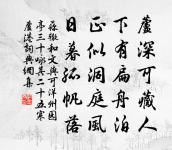 蘆深可藏人
下有扁舟泊
正似洞庭風
日暮孤帆落
蘇轍和文與可洋州園
亭三十詠其二十五寒
蘆港詞典網集